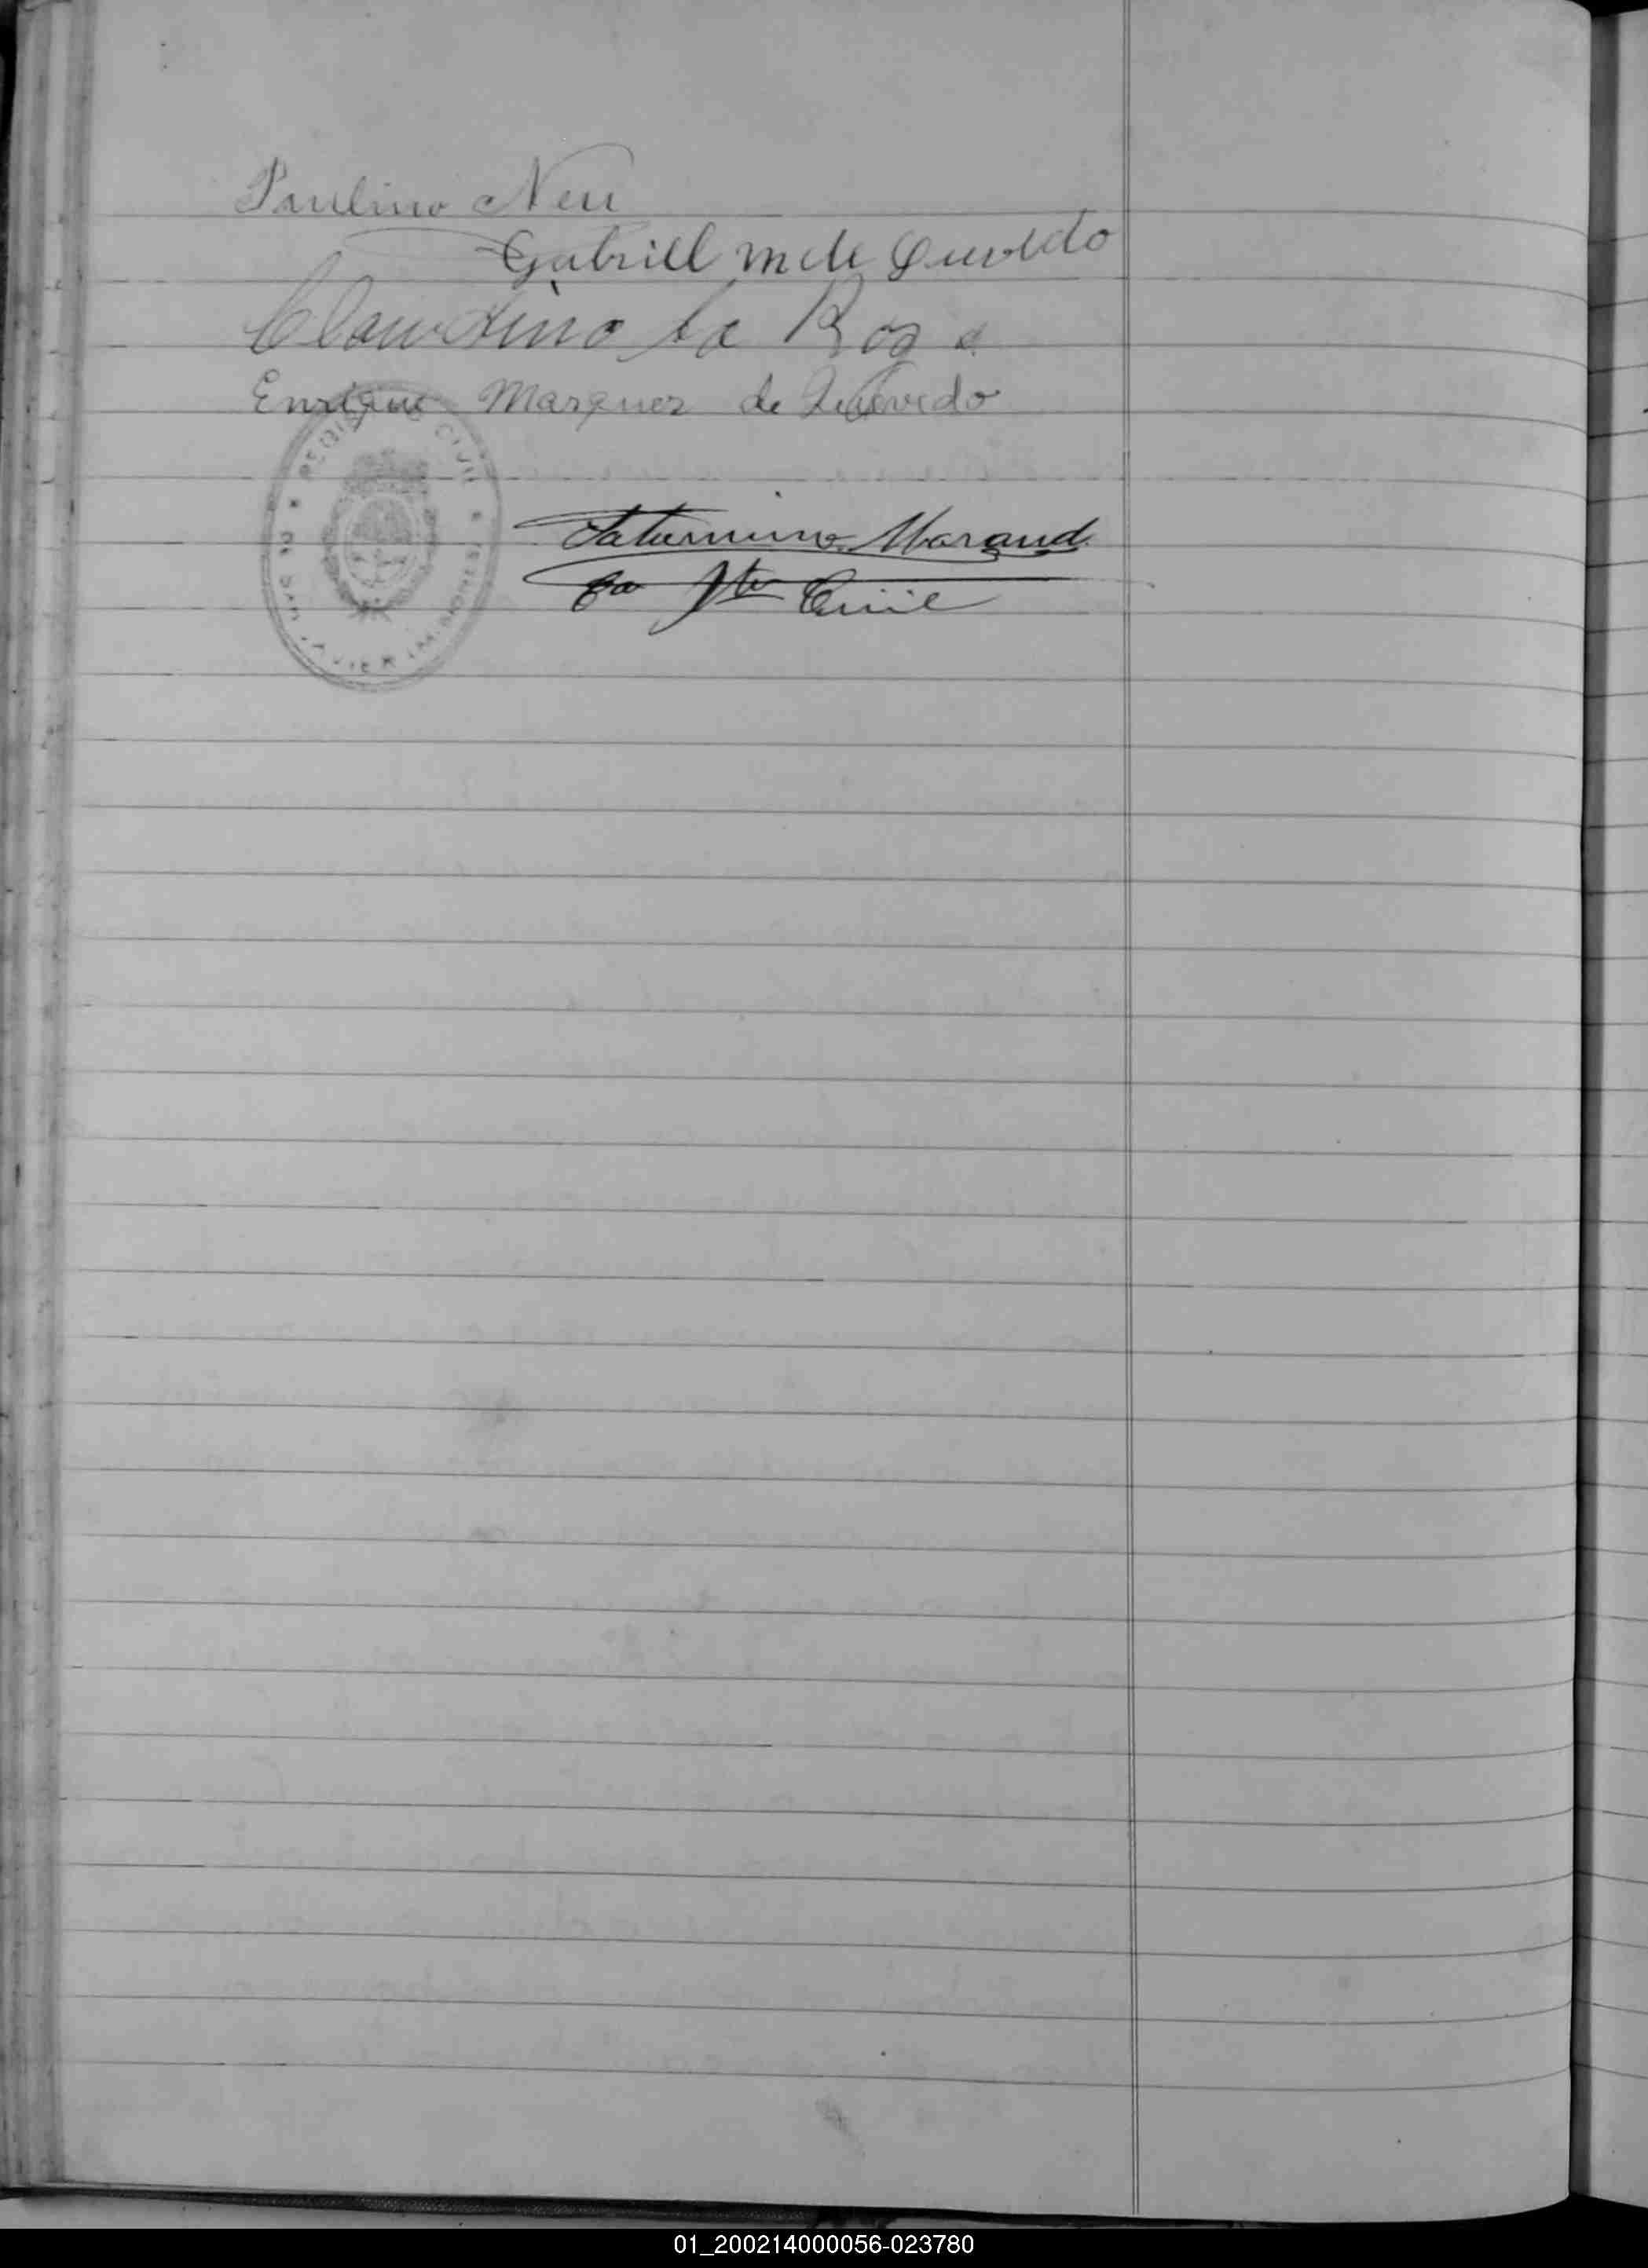 Paulino Neu
Gabriell M de Quevedo
Claudino la Rosa
Enrique Marquez de Quevedo
REGISTRO CIVIL
DE SAN JAVIER (MISIONES)
Saturnino Marand
Civil
01_200214000056-023780